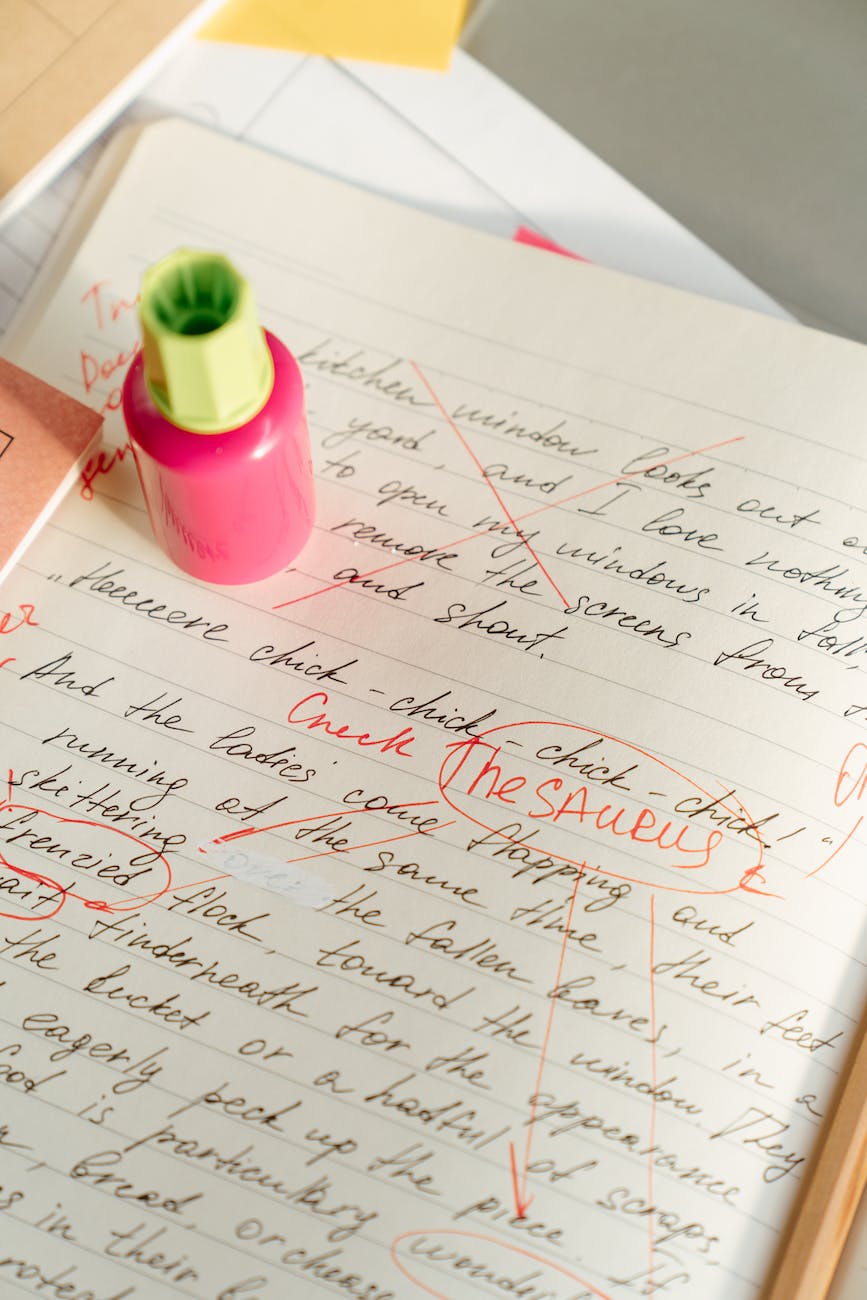 kitchen window looks out
yard, and I love nothing
to open my windows in fall,
remove the screens from
and shout.
„Heeeeere chick - chick - chick - chick!“
Check THeSAURUS
And the ladies come flapping and
running at the same time, their feet
skittering over the fallen leaves, in a
frenzied flock, toward the window. They
wait underheath for the appearance
the bucket or a hatful of scraps,
eagerly peck up the piece. If
is particulary
bread, or cheese
in their